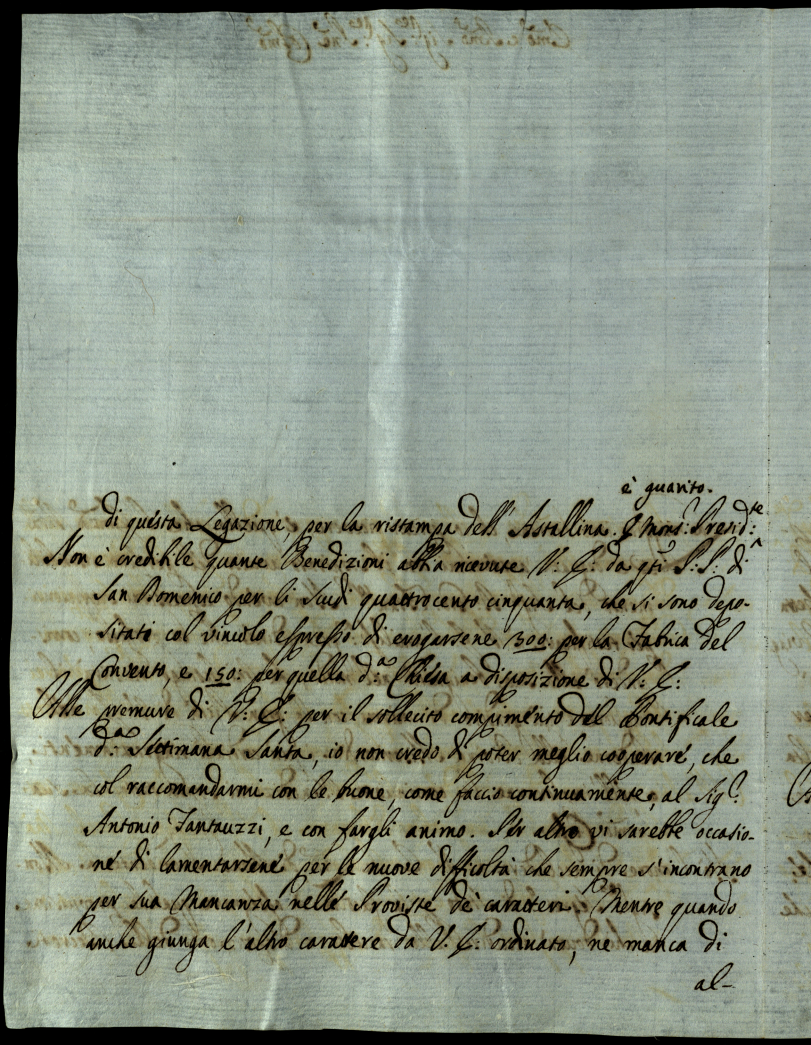 è guarito.
di questa Legazione, per la ristampa dell' Astallina. E Mons:r Presid:te
Non è credibile quante Benedizioni abbia ricevute V: E: da qti P.P: di
San Domenico per li Scudi quattrocento cinquanta, che si sono depo-
sitati col vincolo espresso di erogarsene 300: per la Fabrica del
Convento, e 150: per quella d:a Chiesa a disposizione di V: E:
Alle premure di V: E: per il sollecito compimento del Pontificale
d:a Settimana Santa, io non credo di poter meglio cooperare, che
col raccomandarmi con le buone, come faccio continuamente, al Sig:r
Antonio Fantauzzi, e con fargli animo. Per altro vi sarebbe occasio-
ne di lamentarsene per le nuove difficoltà che sempre s'incontrano
per sua Mancanza nelle Proviste de' caratteri. Mentre quando
anche giunga l'altro carattere da V. E: ordinato, ne manca di
al-